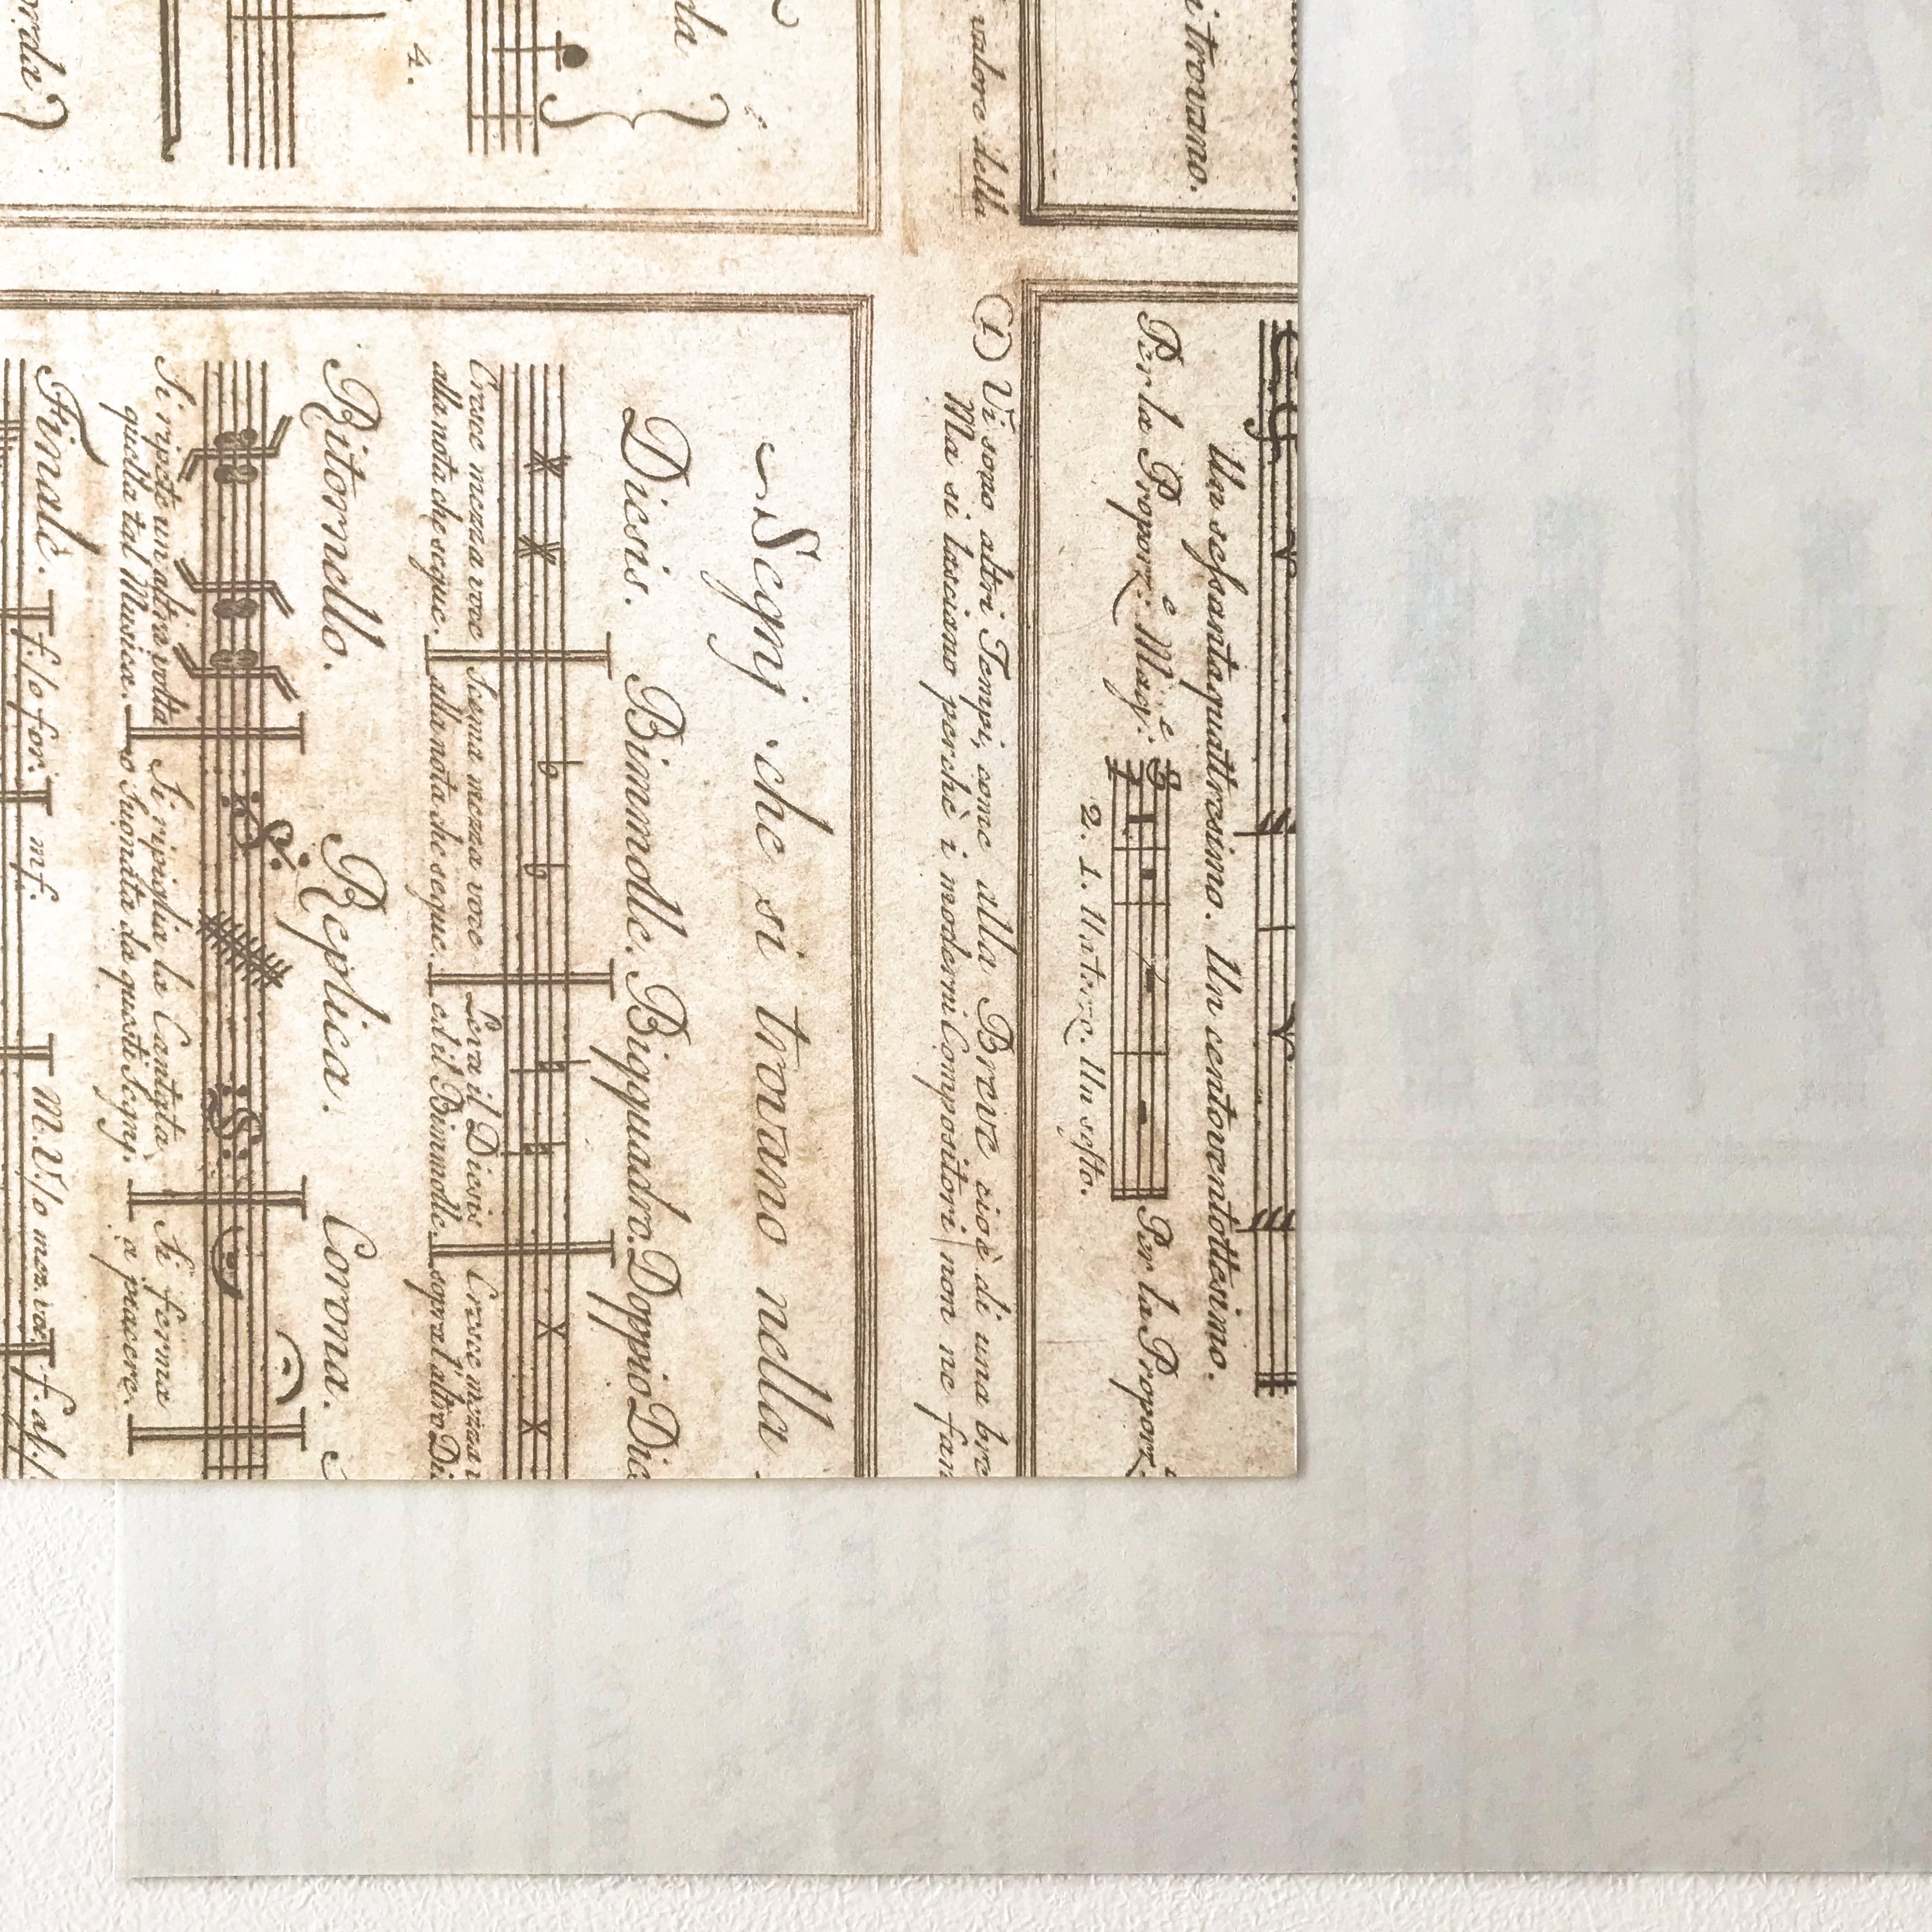 i trovano.
Un sessantaquattresimo. Un centoventottesimo.
Per la Proporz: e Magg: e Per la Proporz
2. 1. Un terzo. Un sesto.
valore della
(1) Vi sono altri Tempi, come alla Breve cioè di una bre
Ma si lasciano perchè i moderni Compositori non ne fan
da
4.
orda
Segnj che si trovano nella
Diesis. Bimmolle. Biqquadro. Doppio Die
Cresce mezza voce Scema mezza voce Leva il Diesis Cresce mezza v
alla nota che segue. alla nota che segue. ed il Bimmolle. sopra l'altro Di
Ritornello. Replica. Corona.
Si ripete un altra volta Si ripiglia la Cantata, Si ferma
quella tal Musica. o Suonata da questi Segnj. a piacere.
Finale. f. /o for: mf. M.V. /o mez. voc. f. af.